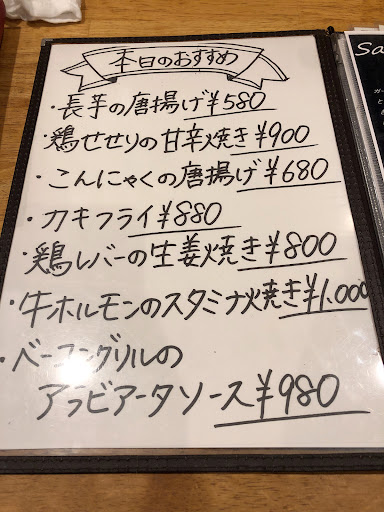 本日のおすすめ
・長芋の唐揚げ¥580
・鶏せせりの甘辛焼き¥900
・こんにゃくの唐揚げ¥680
・カキフライ¥880
・鶏レバーの生姜焼き¥800
・牛ホルモンのスタミナ焼き¥1.000
・ベーコングリルの
アラビアータソース¥980
Sa